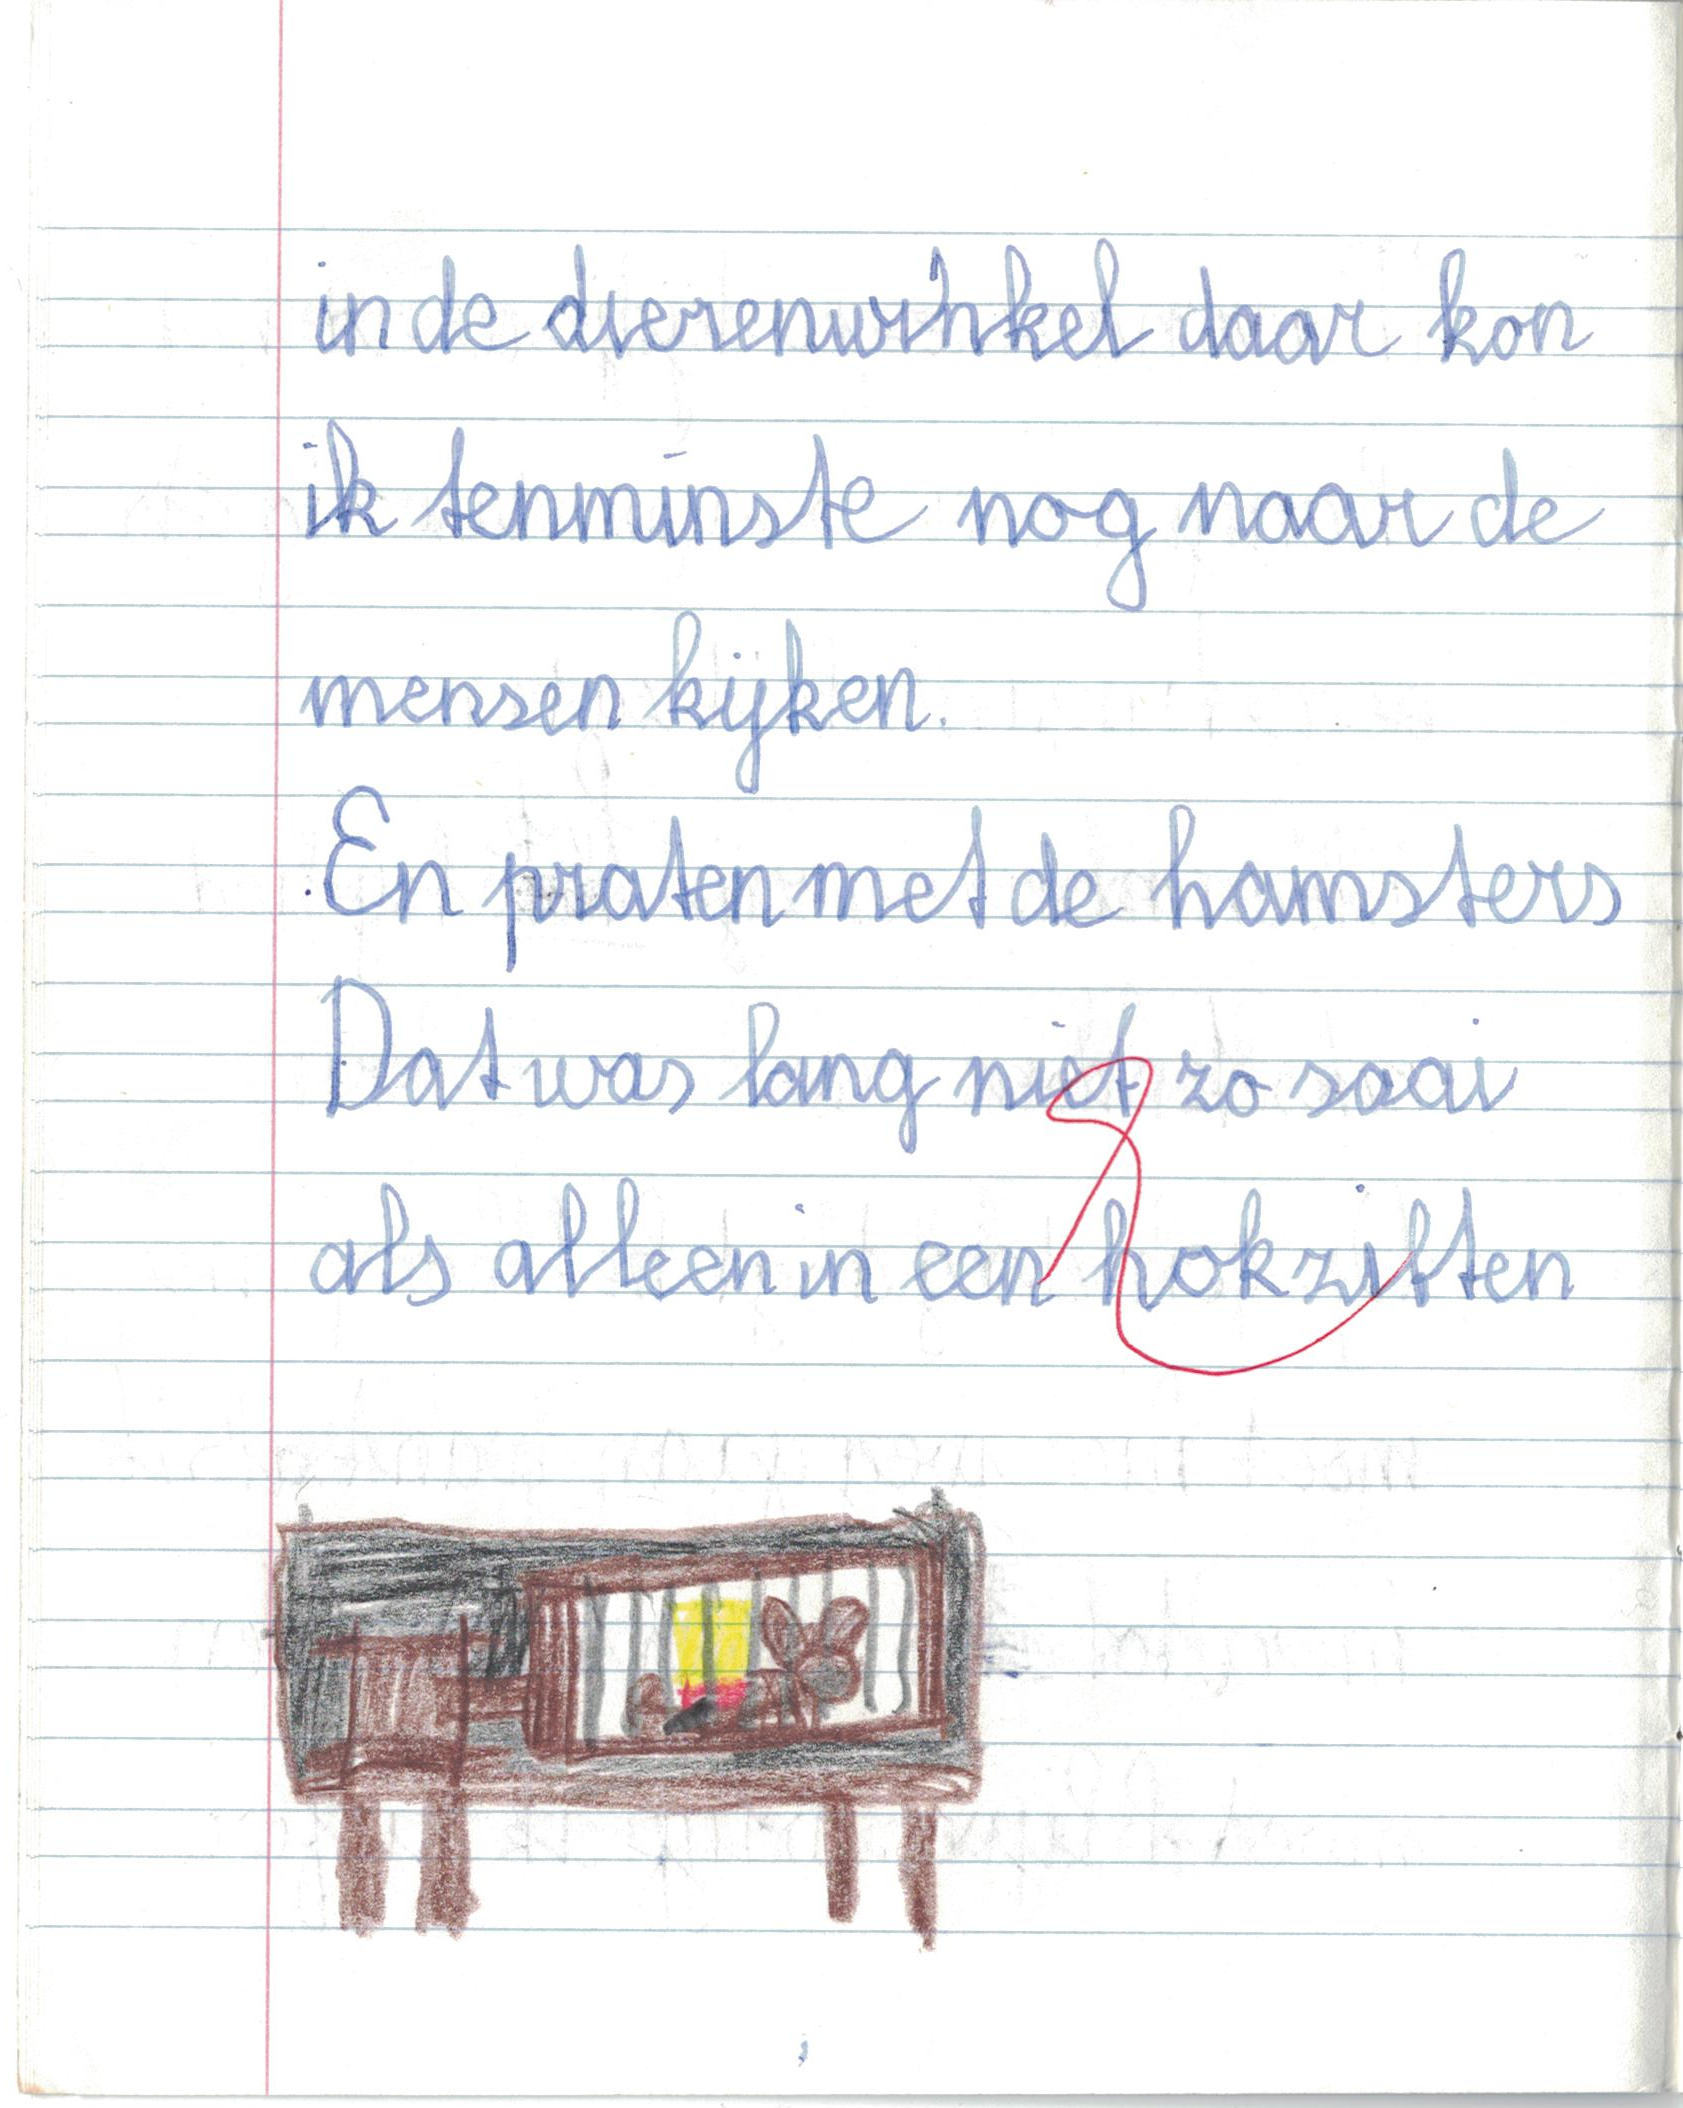 in de dierenwinkel daar kon
ik tenminste nog naar de
mensen kijken.
En praten met de hamsters
Dat was lang niet zo saai
als alleen in een hok zitten